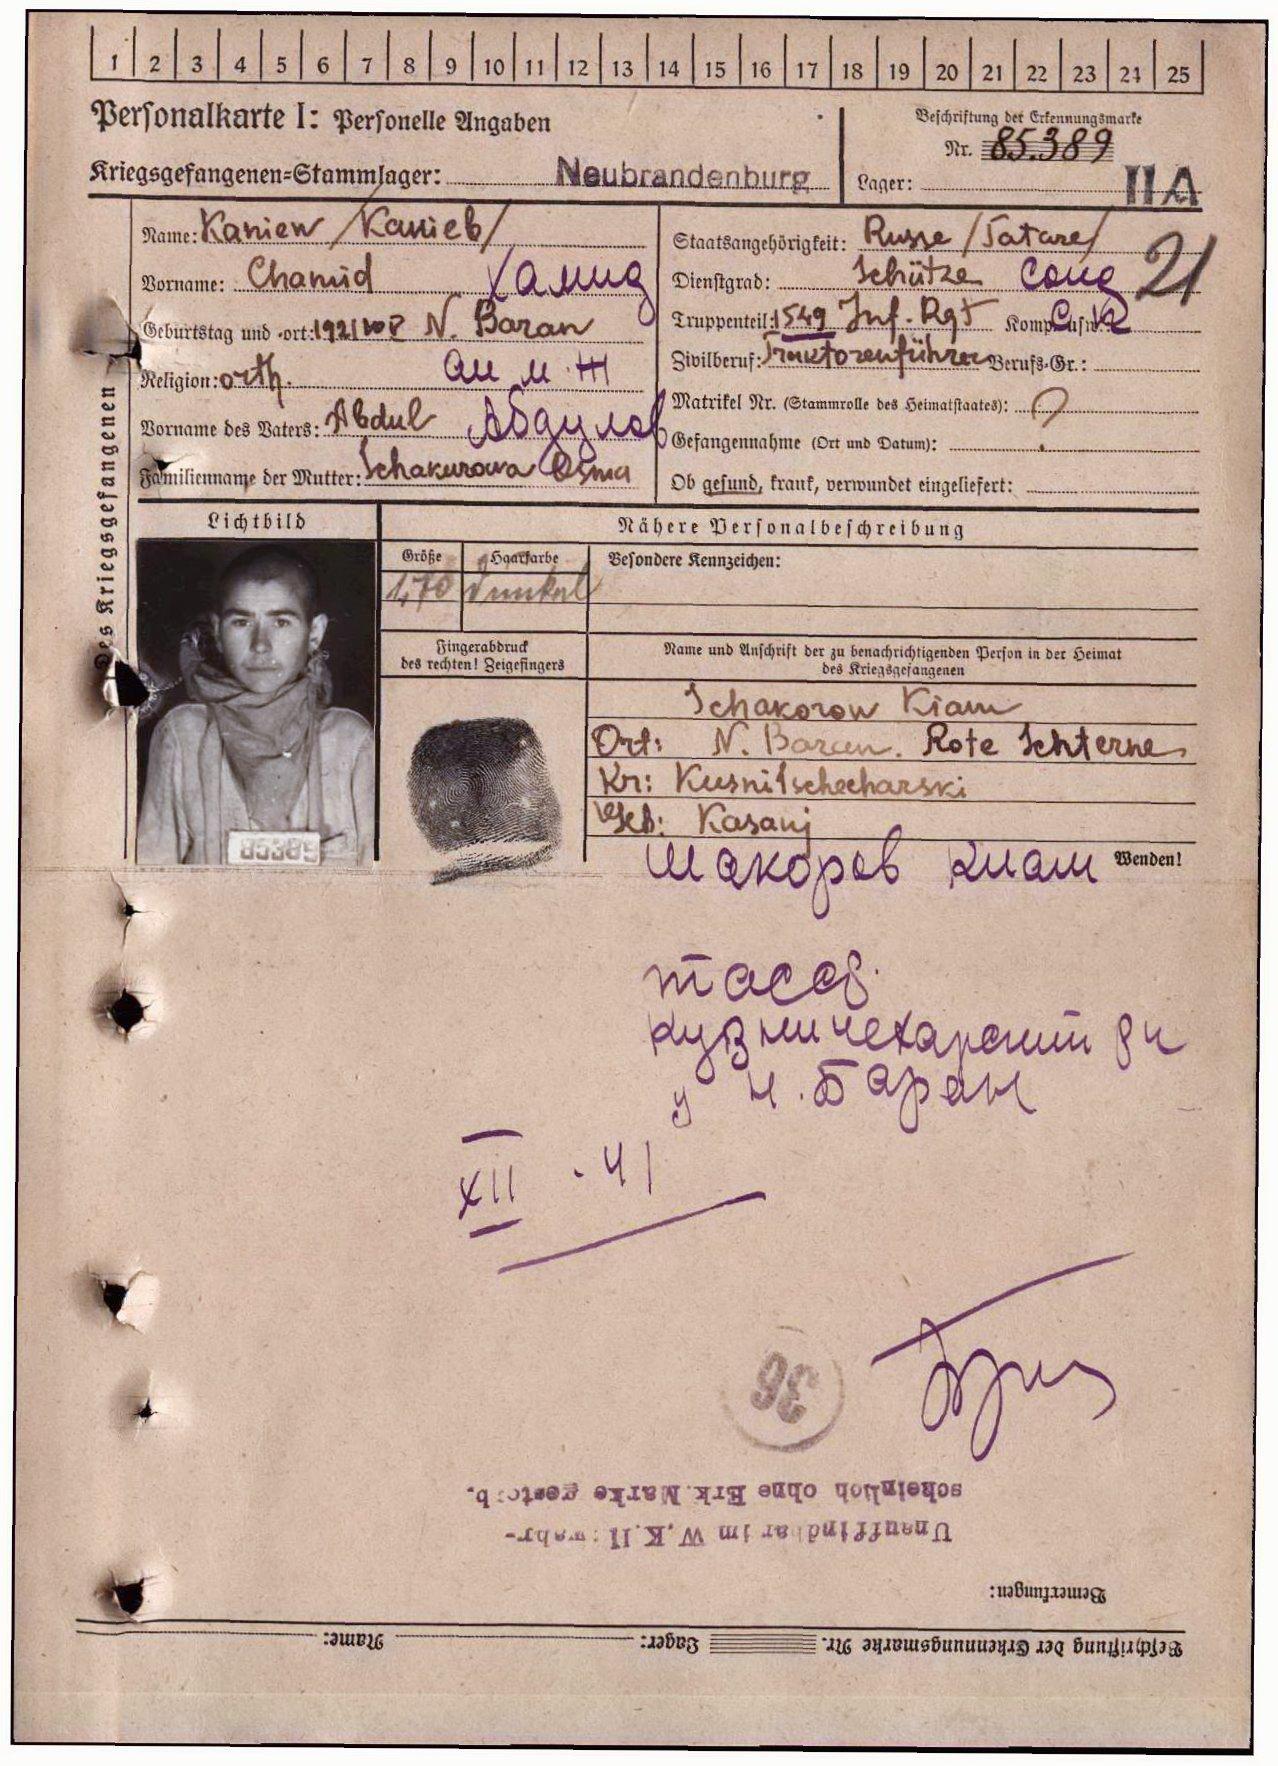 1 2 3 4 5 6 7 8 9 10 11 12 13 14 15 16 17 18 19 20 21 22 23 24 25
Personalkarte I: Personelle Angaben
Kriegsgefangenen=Stammlager: Neubrandenburg
Beschriftung der Erkennungsmarke
Nr. 85.389
Lager: II A
Des Kriegsgefangenen
Name: Kaniew /Kanieb/
Vorname: Chamid Хамид
Geburtstag und -ort: 1921 N. Baran
Religion: orth.
Vorname des Vaters: Abdul Абдулов
Familienname der Mutter: Schakurowa Osma
Staatsangehörigkeit: Russe /Tatare/
21
Dienstgrad: Schütze Солд
Truppenteil: 1549 Inf. Rgt Komp. usw.:
Zivilberuf: Traktorenführer Berufs-Gr.:
Matrikel Nr. (Stammrolle des Heimatstaates): ?
Gefangennahme (Ort und Datum):
Ob gesund, krank, verwundet eingeliefert:
Lichtbild
Nähere Personalbeschreibung
Größe Haarfarbe Besondere Kennzeichen:
1,70 Dunkel
Fingerabdruck
des rechten! Zeigefingers
Name und Anschrift der zu benachrichtigenden Person in der Heimat
des Kriegsgefangenen
Schakorow Kiam
Ort: N. Baran. Rote Schterne
Kr: Kusnitschecharski
Geb: Kasanj
85389
Wenden!
Шакоров Киам
тасс
Кузничехарский
у Н. Баран
XII - 41
36
Unauffindbar im W.K. II : wahr-
scheinlich ohne Erk. Marke gestorb.
Bemerkungen:
Beschriftung der Erkennungsmarke Nr. Lager: Name: